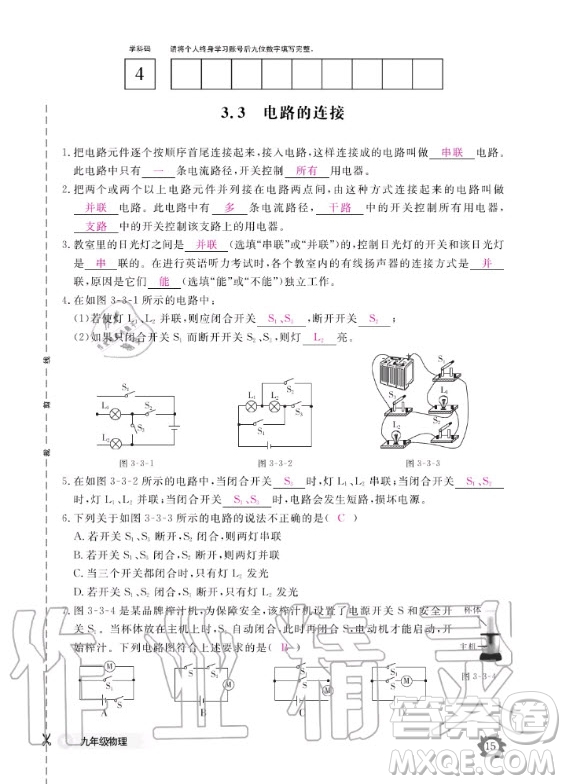 学科码 请将个人终身学习账号后九位数字填写完整。
4
3.3 电路的连接
1.把电路元件逐个按顺序首尾连接起来,接入电路,这样连接成的电路叫做 串联 电路。
此电路中只有 一 条电流路径,开关控制 所有 用电器。
2.把两个或两个以上电路元件并列接在电路两点间,由这种方式连接的电路叫做
并联 电路。此电路中有 多 条电流路径, 干路 中的开关控制所有用电器,
支路 中的开关控制该支路上的用电器。
3.教室里的日光灯之间是 并联 (选填“串联”或“并联”)的,控制日光灯的开关与灯
是 串 联的。在进行英语听力考试时,各个教室内的有线扬声器的连接方式是 并
联,原因是它们 能 (选填“能”或“不能”)独立工作。
4.在如图 3-3-1 所示的电路中:
(1)若使灯 L₁、L₂ 并联,则应闭合开关 S₁、S₃ ,断开开关 S₂ ;
(2)如果只闭合开关 S₂ 而断开开关 S₁、S₃,则灯 L₂ 亮。
S₁
L₁
S₂
S₃
L₂
图 3-3-1
L₁ L₂
S₃
S₁
S₂
图 3-3-2
S₁
L₁
S₂
L₂
图 3-3-3
5.在如图 3-3-2 所示的电路中,当闭合开关 S₃ 时,灯 L₁、L₂ 串联;当闭合开关
S₁、S₂ 时,灯 L₁、L₂ 并联;当闭合开关 S₁、S₃ 时,电路会发生短路,损坏电源。
6.下列关于如图 3-3-3 所示的电路的说法不正确的是( C )
A.若开关 S₁、S₃ 断开,S₂ 闭合,则两灯串联
B.若开关 S₁、S₃ 闭合,S₂ 断开,则两灯并联
C.当三个开关都闭合时,只有灯 L₂ 发光
D.若开关 S₁、S₂ 断开,S₃ 闭合,则只有灯 L₂ 发光
7.图 3-3-4 是某品牌榨汁机,为保障安全,该榨汁机设置了电源开关 S 和安全开
关 S₁。当杯体放入主机时,S₁ 自动闭合,此时再闭合 S,电动机才能启动,开
始榨汁。下列电路图符合上述要求的是( B )
杯体
主机
图 3-3-4
M S₁ S
A
M S₁ S
B
M S₁ S
C
M S₁ S
D
线 剪 裁
九年级物理
15
作业精灵
答案圈
MXQE.COM